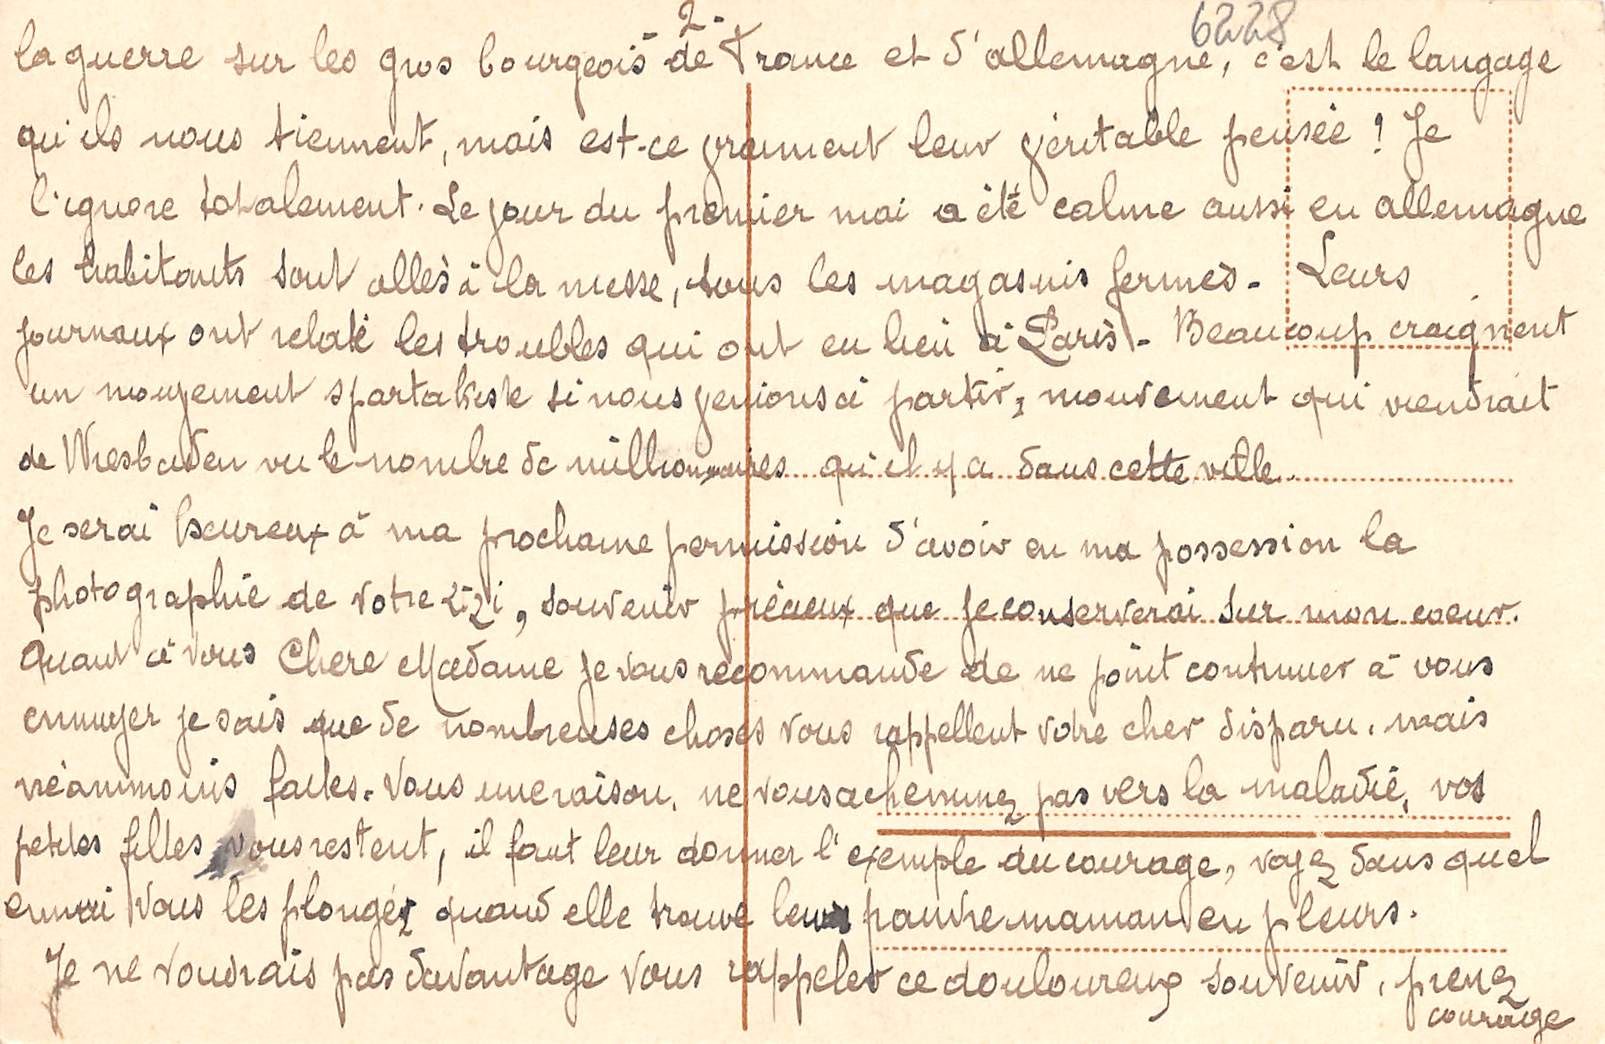 2-
6228
la guerre sur les gros bourgeois de France et d'allemagne, c'est le langage
qu'ils nous tiennent, mais est-ce vraiment leur véritable pensée ! Je
l'ignore totalement. Le jour du premier mai a été calme aussi en allemagne
les habitants sont allés à la messe, tous les magasins fermés - Leurs
journaux ont relaté les troubles qui ont eu lieu à Paris - Beaucoup craignent
un mouvement spartakiste si nous venions à partir, mouvement qui viendrait
de Wiesbaden vu le nombre de millionnaires qu'il y a dans cette ville.
Je serai heureux à ma prochaine permission d'avoir en ma possession la
photographie de votre Zizi, souvenir précieux que je conserverai sur mon coeur.
Quant à vous Chere Madame je vous recommande de ne point continuer à vous
ennuyer je sais que de nombreuses choses vous rappellent votre cher disparu, mais
néanmoins faites-vous une raison, ne vous acheminez pas vers la maladie, vos
petites filles vous restent, il faut leur donner l'exemple du courage, voyez dans quel
ennui vous les plongez quand elle trouve leur pauvre maman en pleurs.
Je ne voudrais pas davantage vous rappeler ce douloureux souvenir, prenez
courage